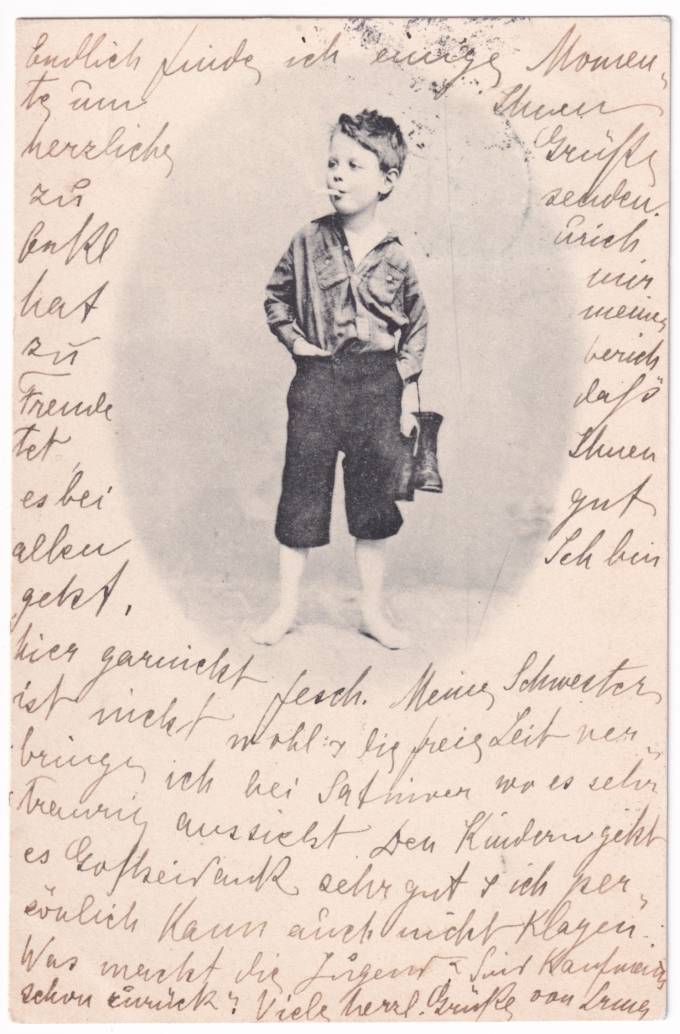 Endlich finde ich einige Momen-
te um Ihnen
herzliche Grüße
zu senden.
Enkl ürich
hat mir
zu meine
Freude berich
tet, daß
es bei Ihnen
allen gut
geht, Ich bin
hier garnicht fesch. Meine Schwester
ist nicht wohl & die freie Zeit ver-
bringe ich bei wo es sehr
traurig aussieht Den Kindern geht
es Gottseidank sehr gut & ich per-
sönlich kann auch nicht klagen.
Was macht die Jugend? Sind
schon zurück? Viele herzl. Grüße von Irma